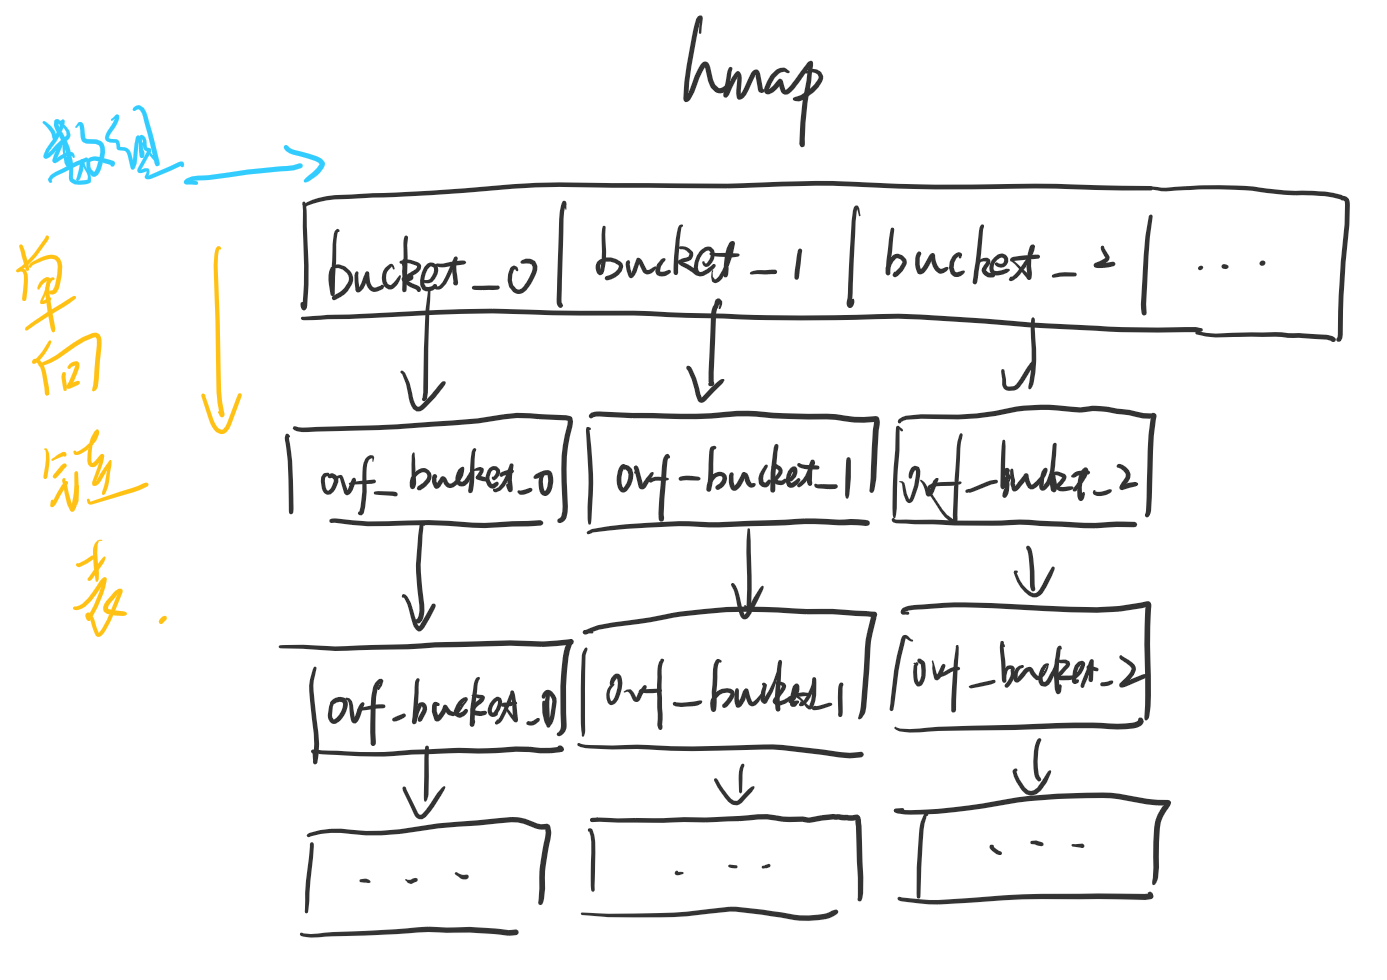 hmap
数组
bucket_0 bucket_1 bucket_2 ...
单向链表.
ovf_bucket_0 ovf_bucket_1 ovf_bucket_2
ovf_bucket_0 ovf_bucket_1 ovf_bucket_2
... ... ...